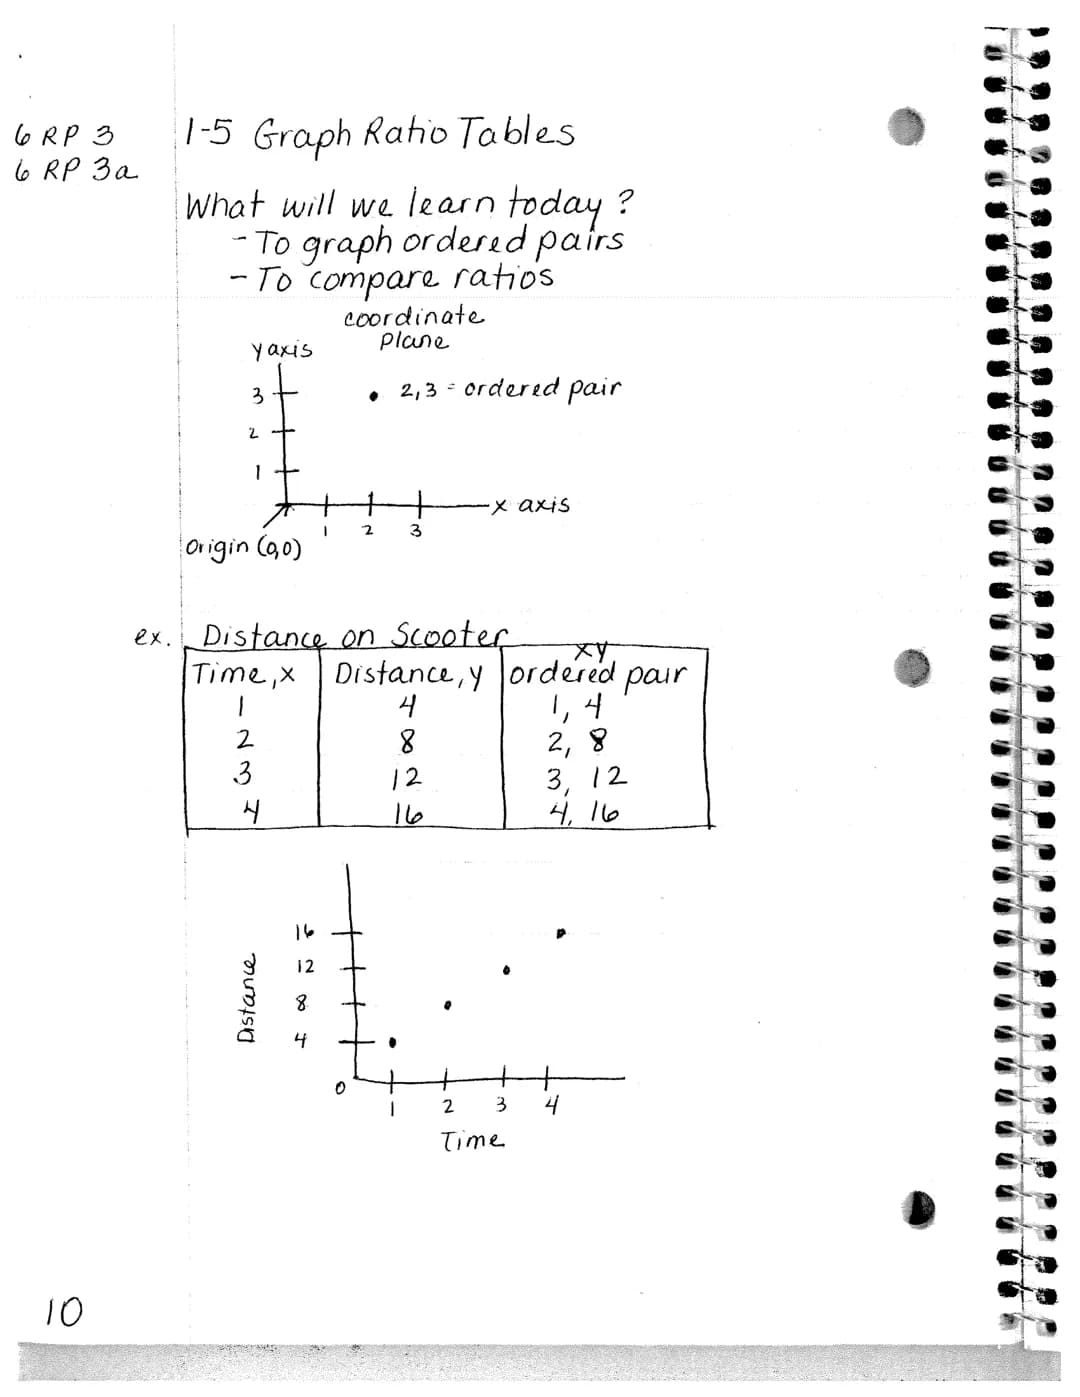 6 RP 3
6 RP 3a
1-5 Graph Ratio Tables
What will we learn today?
- To graph ordered pairs
- To compare ratios
coordinate
plane
y axis
3
2,3 = ordered pair
2
1
x axis
1 2 3
Origin (0,0)
ex. Distance on Scooter
xy
Time, x Distance, y ordered pair
1 4 1, 4
2 8 2, 8
3 12 3, 12
4 16 4, 16
16
12
8
4
Distance
0
1 2 3 4
Time
10